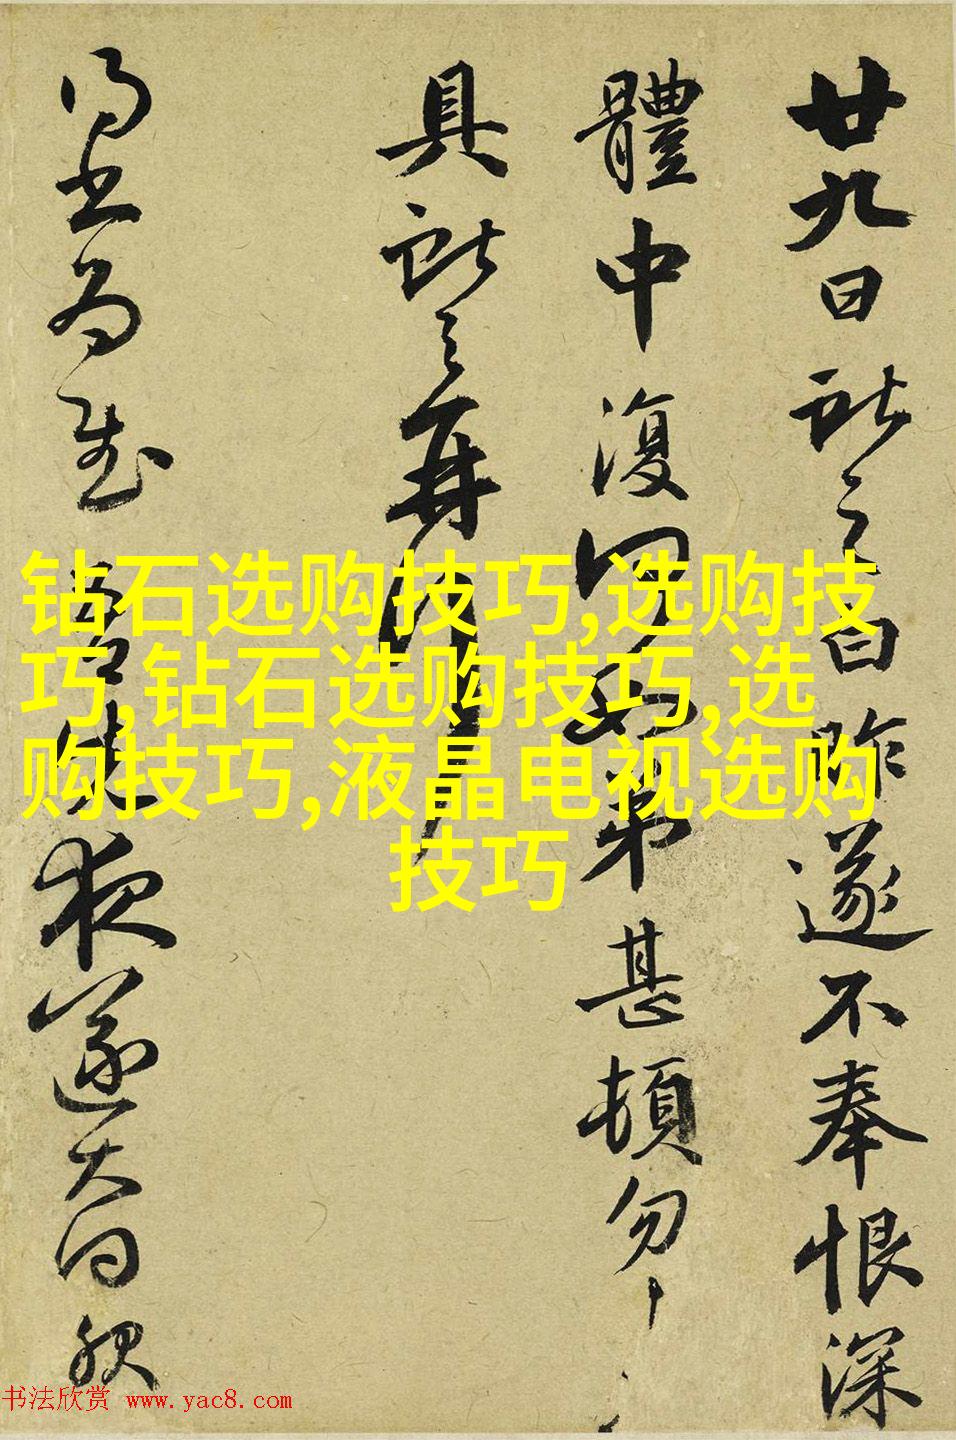 廿九日献之白昨遂不奉恨深
體中復何如弟甚頓匆匆不
具献之再拜
得書為慰
夜遂大
钻石选购技巧,选购技
巧,钻石选购技巧,选
购技巧,液晶电视选购
技巧
书法欣赏 www.yac8.com